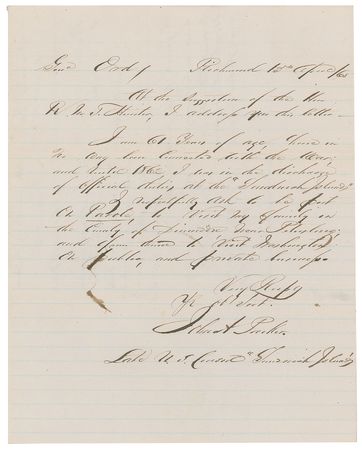 Genl Ord / Richmond 18th April /65
At the suggestion of the Hon
R. M. T. Hunter, I address you this letter
I am 61 Years of age, have in
no way been connected with the War,
and until 1862 I was in the discharge
of Official duties at the "Sandwich Islands"
I respectfully ask to be put
on Parole, to visit my family in
the County of Dinwiddie near Petersburg
and from there to visit Washington
on public, and private business.
Very Respy
Yr ob Sert.
John A Parker
Late U. S. Consul "Sandwich Islands"